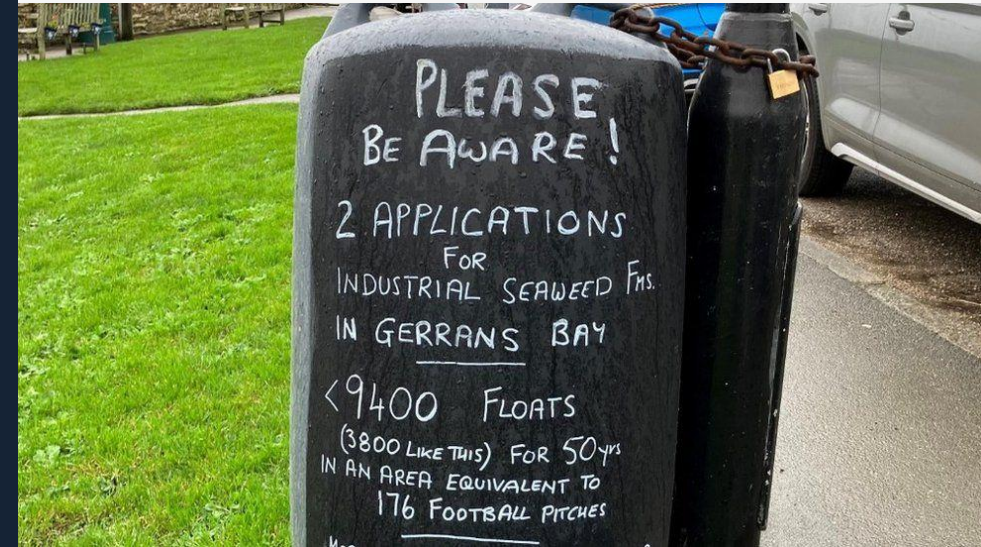 PLEASE
BE AWARE!
2 APPLICATIONS
FOR
INDUSTRIAL SEAWEED FMS.
IN GERRANS BAY
<9400 FLOATS
(3800 LIKE THIS) FOR 50 yrs
IN AN AREA EQUIVALENT TO
176 FOOTBALL PITCHES